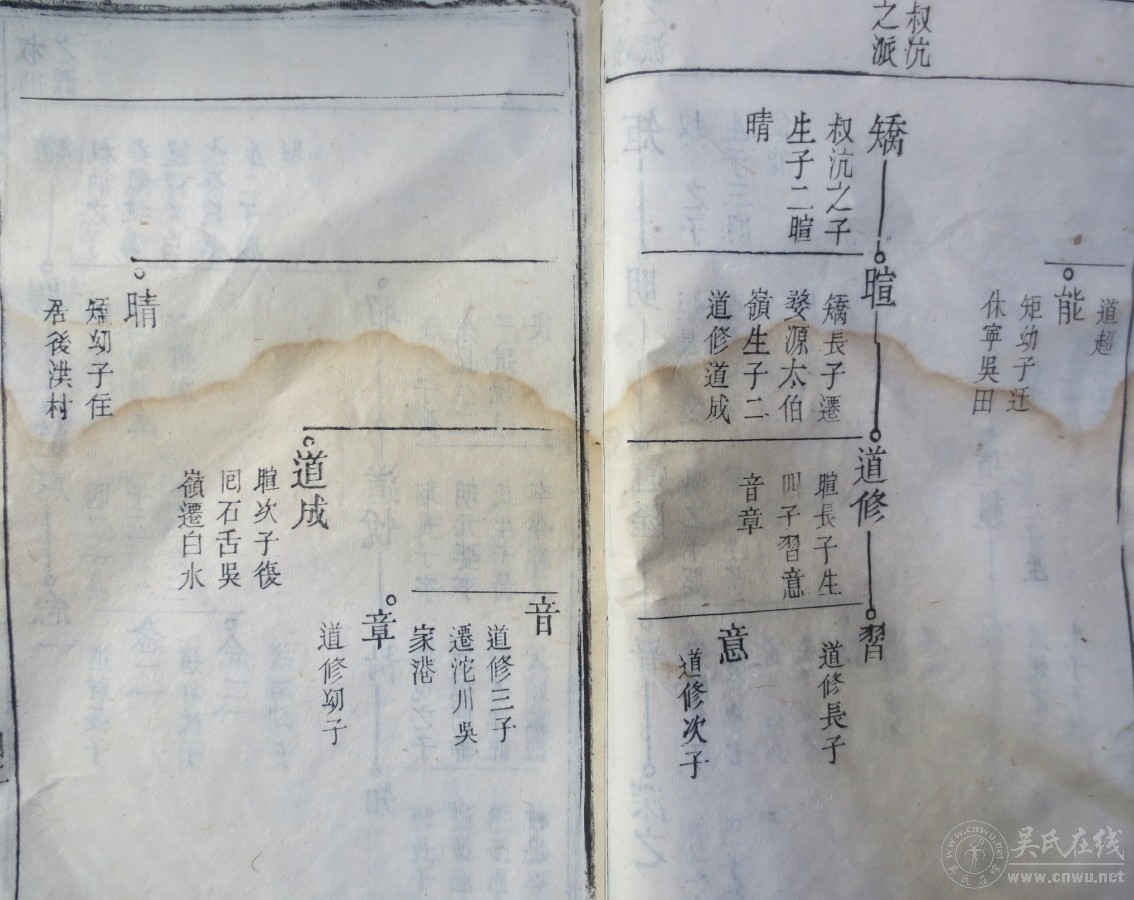 叔沆
之派
道超
能
矩幼子迁
休寧吳田
矯
叔沆之子
生子二暄
晴
暄
矯長子遷
婺源太伯
嶺生子二
道修道成
道修
暄長子生
四子習意
音章
習
道修長子
意
道修次子
音
道修三子
遷沱川吳
家港
章
道修幼子
道成
暄次子復
回石舌吳
嶺遷白水
晴
矯幼子住
居後洪村
吴氏在线
www.cnwu.net